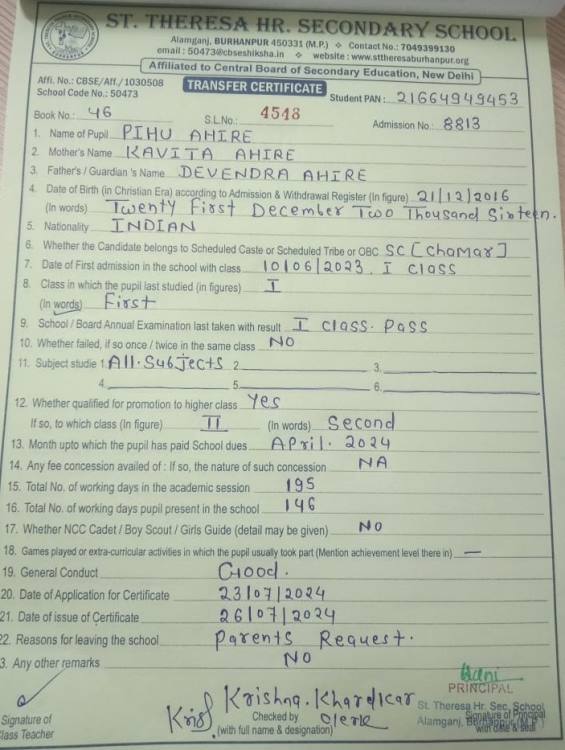 ST. THERESA HR. SECONDARY SCHOOL
Alamganj, BURHANPUR 450331 (M.P.) ❖ Contact No.: 7049399130
email : 50473@cbseshiksha.in ❖ website : www.sttheresaburhanpur.org
Affiliated to Central Board of Secondary Education, New Delhi
Affi. No.: CBSE/Aff./1030508
School Code No.: 50473
TRANSFER CERTIFICATE
Student PAN : 21664949453
Book No.: 46 S.L.No.: 4548 Admission No.: 8813
1. Name of Pupil PIHU AHIRE
2. Mother's Name KAVITA AHIRE
3. Father's / Guardian 's Name DEVENDRA AHIRE
4. Date of Birth (in Christian Era) according to Admission & Withdrawal Register (In figure) 21/12/2016
(In words) Twenty First December Two Thousand Sixteen.
5. Nationality INDIAN
6. Whether the Candidate belongs to Scheduled Caste or Scheduled Tribe or OBC SC [Chamar]
7. Date of First admission in the school with class 10/06/2023. I Class
8. Class in which the pupil last studied (in figures) I
(In words) First
9. School / Board Annual Examination last taken with result I Class. Pass
10. Whether failed, if so once / twice in the same class NO
11. Subject studie 1. All. Subjects 2. 3.
4. 5. 6.
12. Whether qualified for promotion to higher class Yes
If so, to which class (In figure) II (In words) Second
13. Month upto which the pupil has paid School dues April. 2024
14. Any fee concession availed of : If so, the nature of such concession NA
15. Total No. of working days in the academic session 195
16. Total No. of working days pupil present in the school 146
17. Whether NCC Cadet / Boy Scout / Girls Guide (detail may be given) NO
18. Games played or extra-curricular activities in which the pupil usually took part (Mention achievement level there in) —
19. General Conduct Good.
20. Date of Application for Certificate 23/07/2024
21. Date of issue of Certificate 26/07/2024
22. Reasons for leaving the school Parents Request.
3. Any other remarks NO
PRINCIPAL
Krishna. Khardikar St. Theresa Hr. Sec. School
Signature of Checked by Clerk Alamganj, Burhanpur (M.P.) Signature of Principal
Class Teacher (with full name & designation) with date & seal